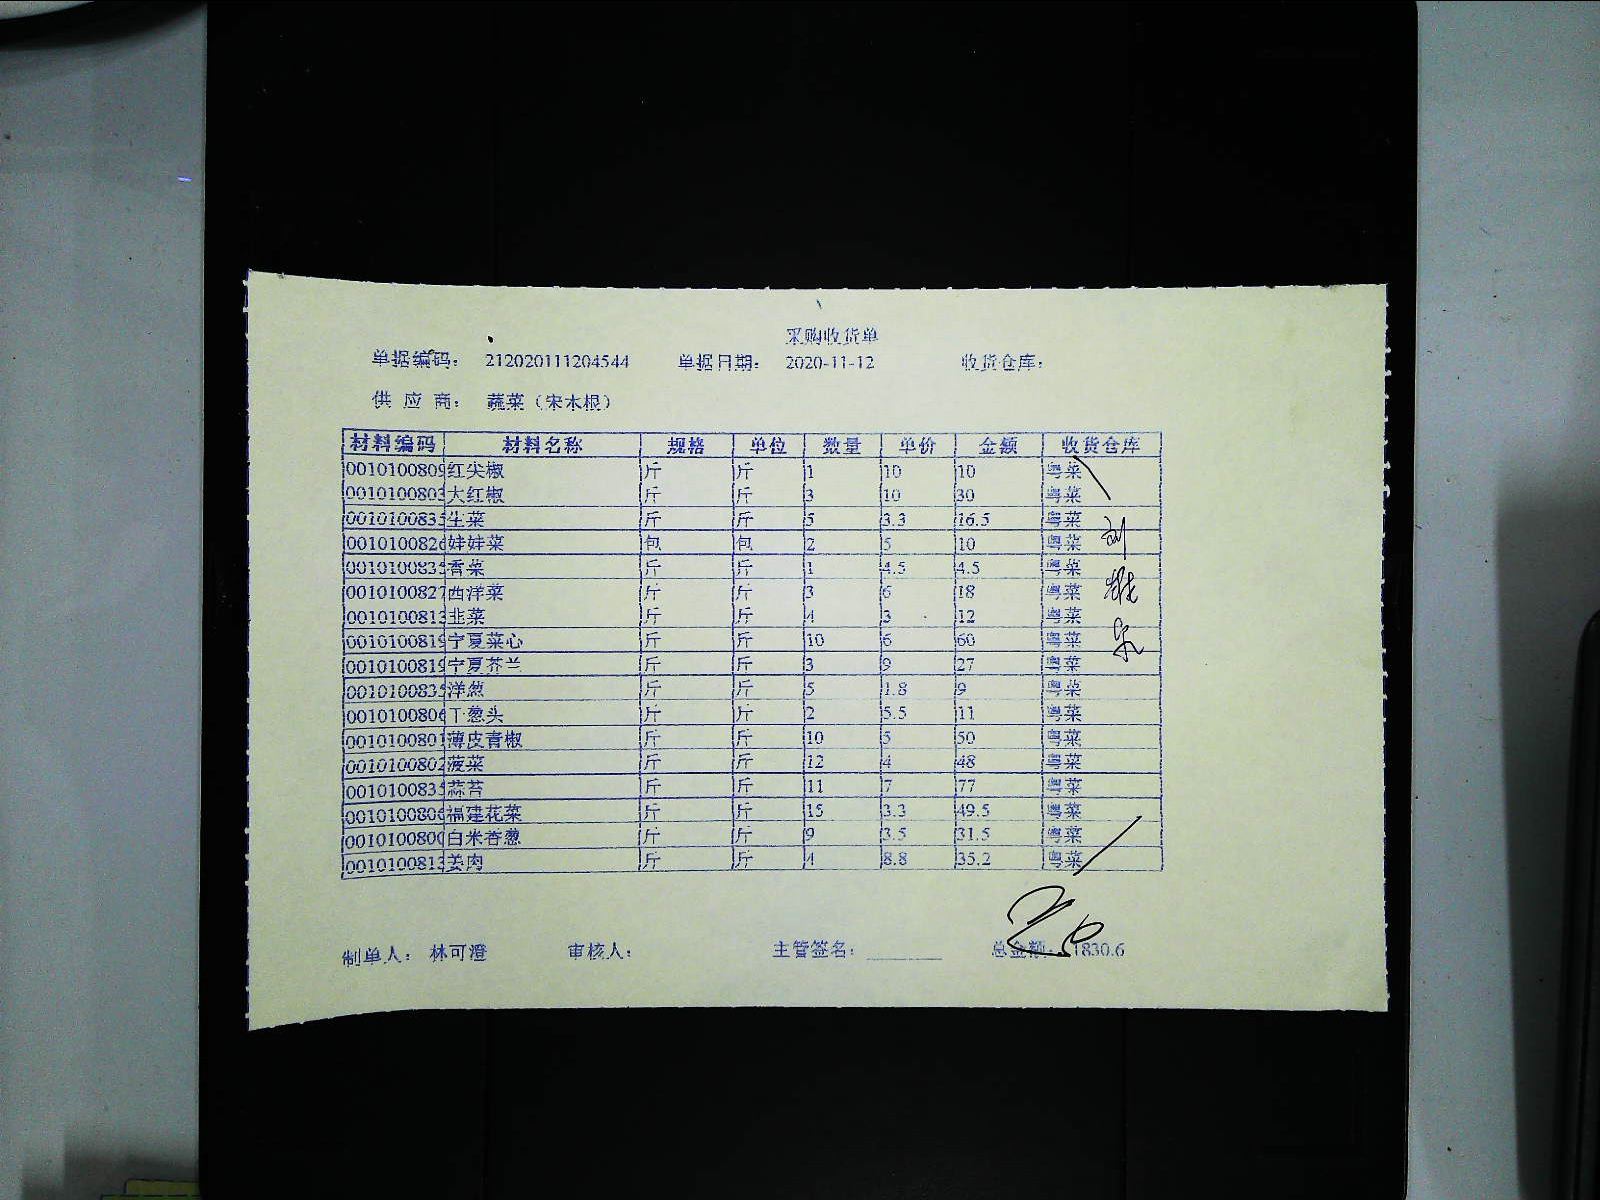 采购收货单
单据编码： 212020111204544 单据日期： 2020-11-12 收货仓库：
供 应 商： 蔬菜（宋木根）
材料编码 材料名称 规格 单位 数量 单价 金额 收货仓库
0010100809 红尖椒 斤 斤 1 10 10 粤菜
0010100803 大红椒 斤 斤 3 10 30 粤菜
001010083 生菜 斤 斤 5 3.3 16.5 粤菜
0010100826 娃娃菜 包 包 2 5 10 粤菜
001010083 香菜 斤 斤 1 4.5 4.5 粤菜
0010100827 西洋菜 斤 斤 3 6 18 粤菜
0010100813 韭菜 斤 斤 4 3 12 粤菜
0010100819 宁夏菜心 斤 斤 10 6 60 粤菜
0010100819 宁夏芥兰 斤 斤 3 9 27 粤菜
001010083 洋葱 斤 斤 5 1.8 9 粤菜
0010100806 干葱头 斤 斤 2 5.5 11 粤菜
0010100801 薄皮青椒 斤 斤 10 5 50 粤菜
0010100802 菠菜 斤 斤 12 4 48 粤菜
001010083 蒜苔 斤 斤 11 7 77 粤菜
0010100806 福建花菜 斤 斤 15 3.3 49.5 粤菜
0010100800 白米香葱 斤 斤 9 3.5 31.5 粤菜
0010100813 姜肉 斤 斤 4 8.8 35.2 粤菜
制单人： 林可澄 审核人： 主管签名： 总金额： 1830.6